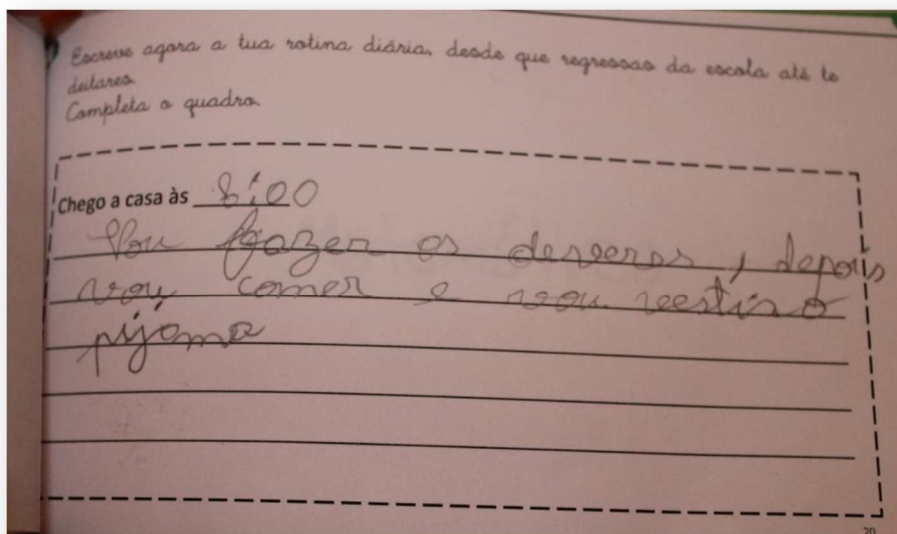 Escreve agora a tua rotina diária, desde que regressas da escola até te
deitares.
Completa o quadro.
Chego a casa às 8:00
Vou fazer os deveres, depois
vou comer e vou vestir o
pijama
20